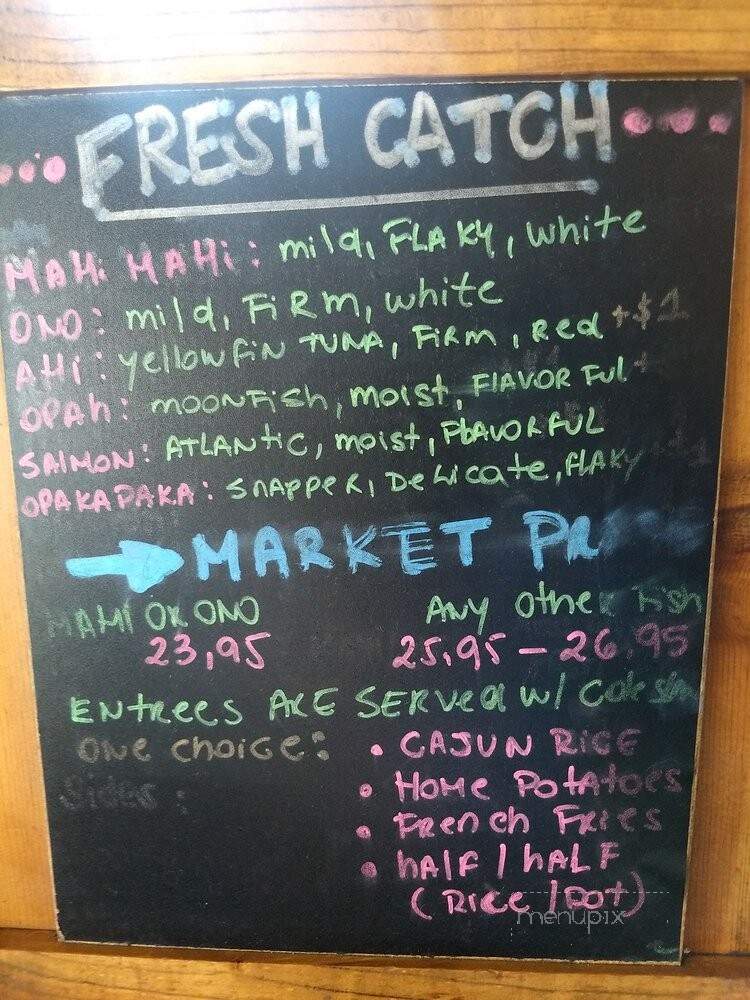 FRESH CATCH
MAHI MAHI: mild, FLAKY, white
ONO: mild, FIRM, white
AHI: yellowfin TUNA, FIRM, Red +$1
OPAH: MOONFISH, MOIST, FLAVORFUL +
SALMON: ATLANTIC, MOIST, FLAVORFUL
OPAKAPAKA: SNAPPER, DELICATE, FLAKY +$1
MARKET PR
MAHI OR ONO
ANY OTHER FISH
23,95
25.95 – 26.95
ENTREES ARE SERVED W/ Coleslaw
ONE CHOICE:
• CAJUN RICE
Sides:
• HOME POTATOES
• FRENCH FRIES
• HALF / HALF
(RICE / POT)
menupix